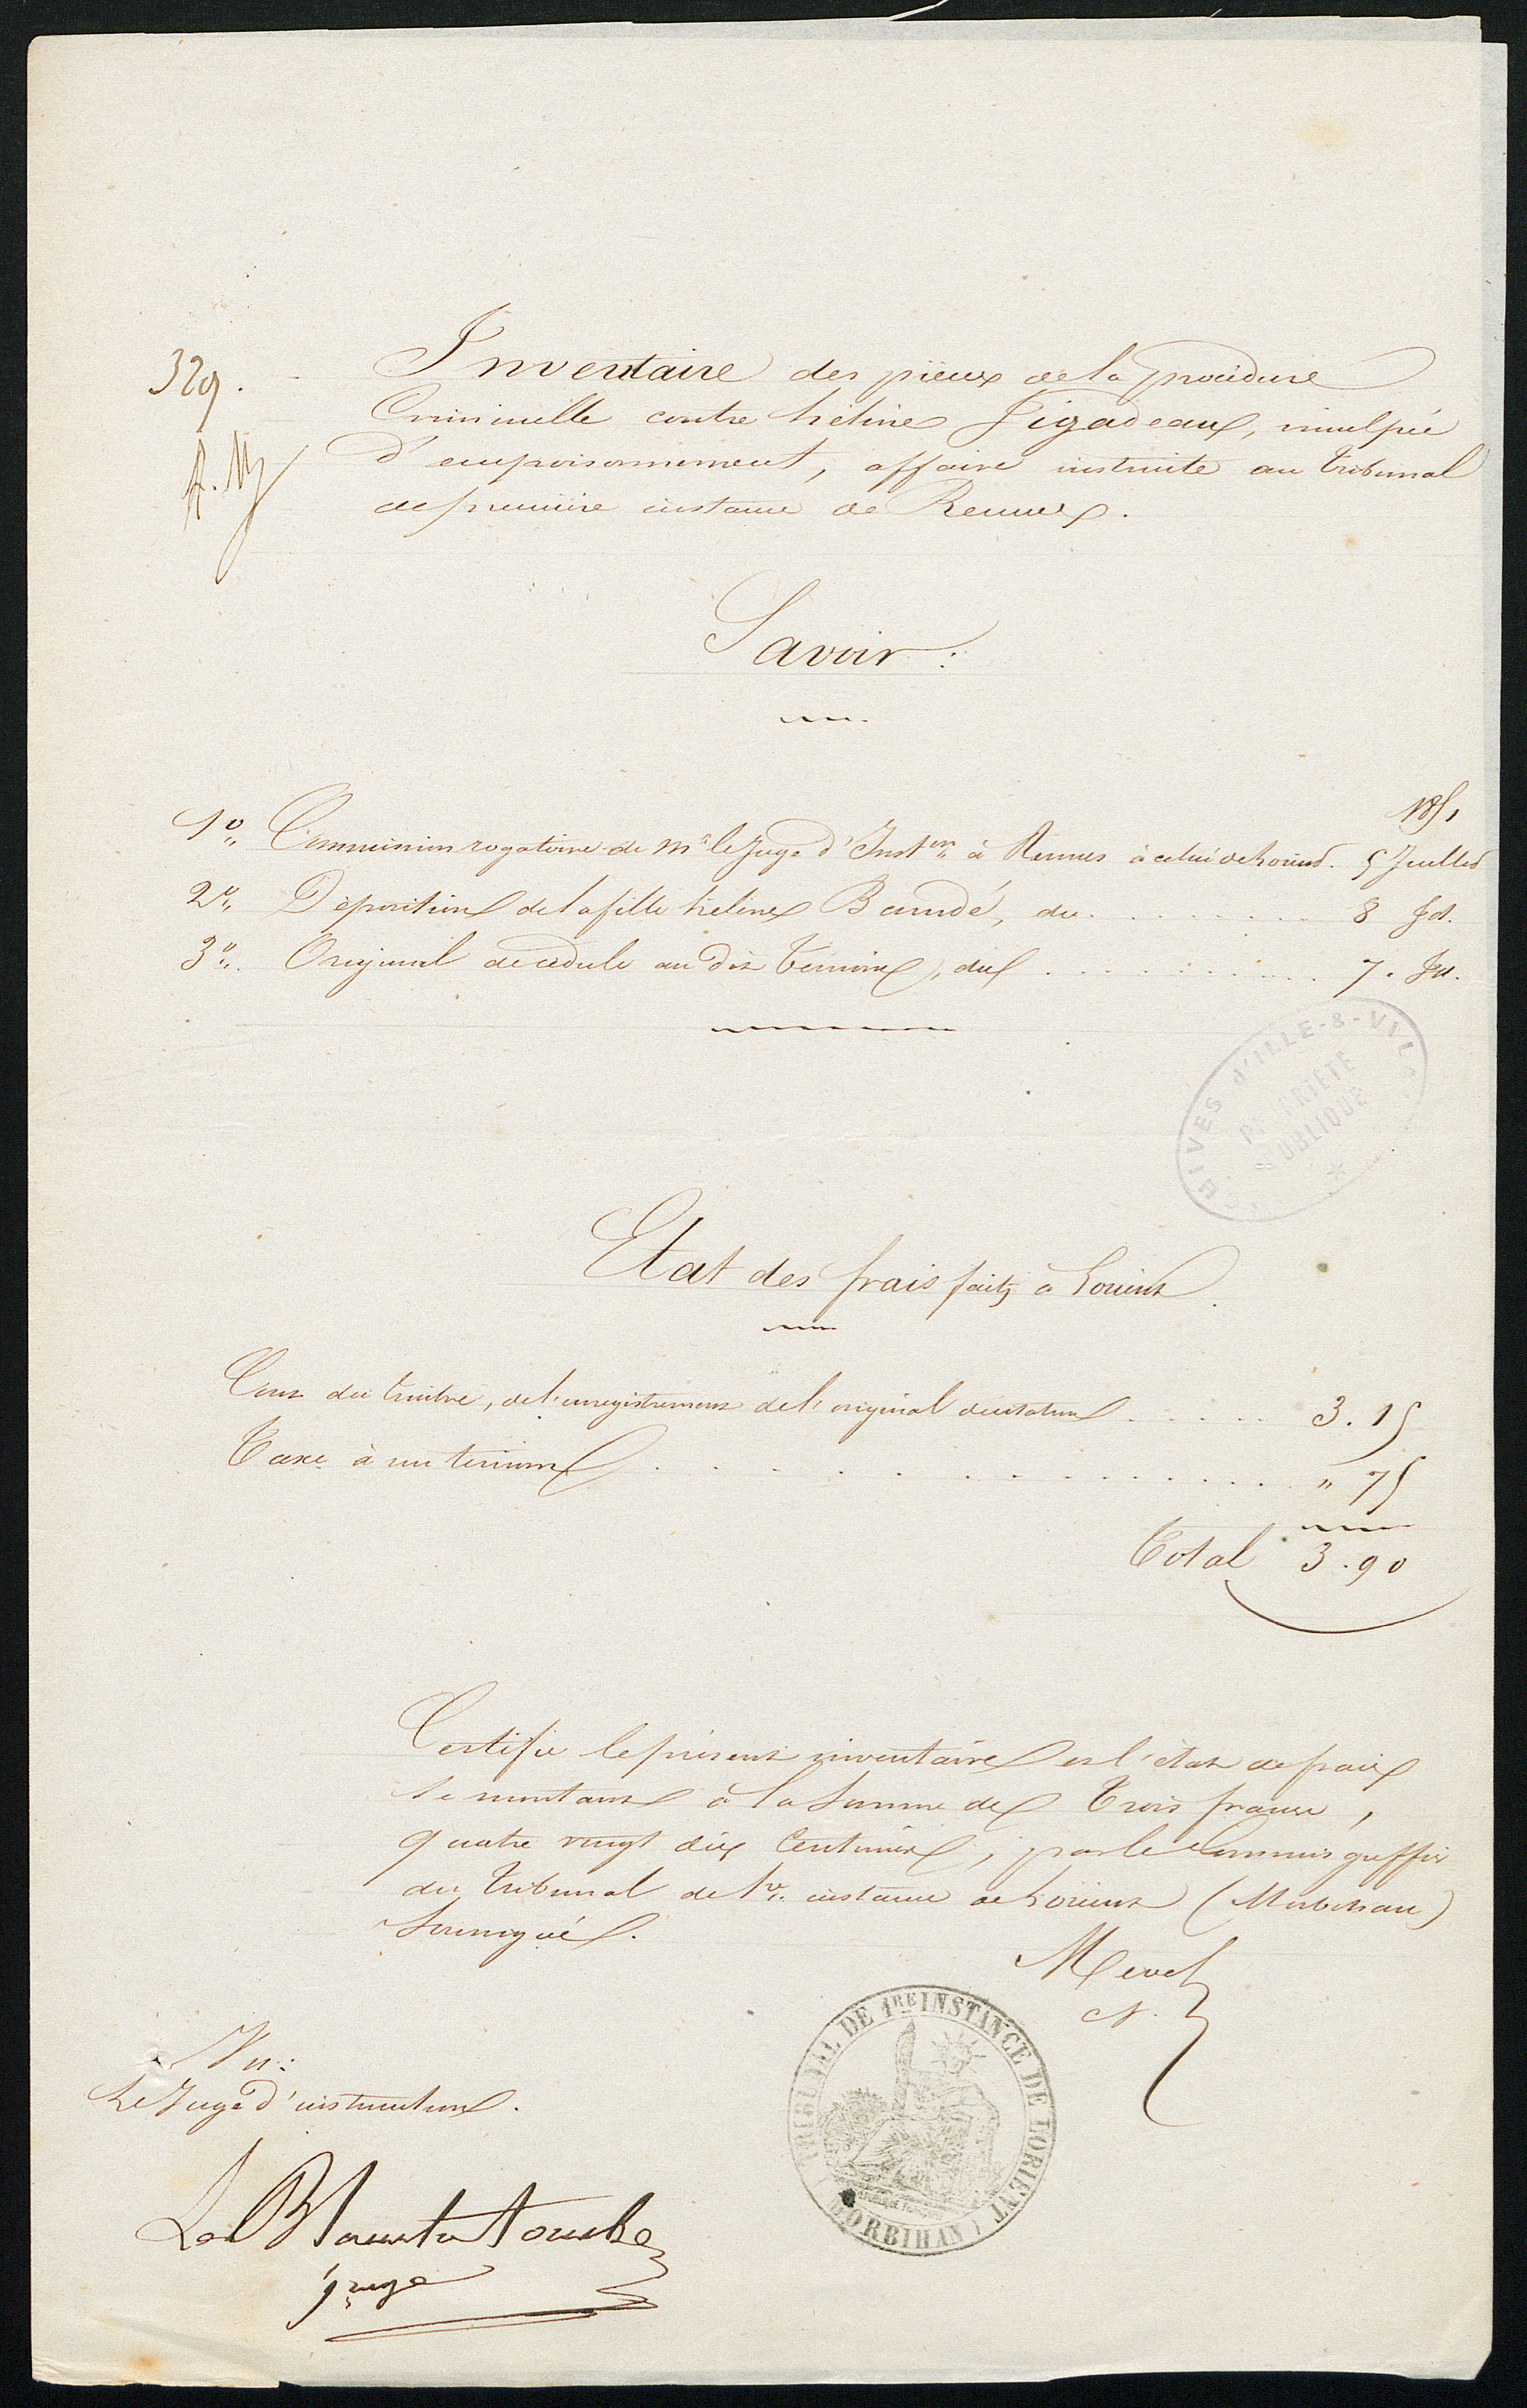 329.
A. M
Inventaire des pièces de la procédure
Criminelle contre hélène Jégadeaux, inculpée
d'empoisonnement, affaire instruite au tribunal
de première instance de Rennes.
Savoir :
1851
1o,, Commission rogatoire de Mr le Juge d'Inston,, à Rennes à celui de Lorient. 5 Juillet
2o,, Déposition de la fille hélène Baudé, du . . . . . . . . 8 Id.
3o,, Original de cédule au dit témoin, du . . . . . . . . . . 7. Id.
ARCHIVES D'ILLE-&-VIL
PROPRIÉTÉ
PUBLIQUE
Etat des frais faits à Lorient.
Cout du timbre, de l'enregistrement de l'original de citation . . . . . 3. 15
Taxe à un témoin . . . . . . . . . . . . . " 75
Total 3. 90
Certifié le présent inventaire et l'état de frais
se montant à la somme de Trois francs,
quatre vingt dix Centimes, par le Commis greffier
du tribunal de 1re,, instance de Lorient (Morbihan)
Soussigné.
Vu :
Le Juge d'instruction.
juge
TRIBUNAL DE 1RE INSTANCE DE LORIENT
(MORBIHAN)